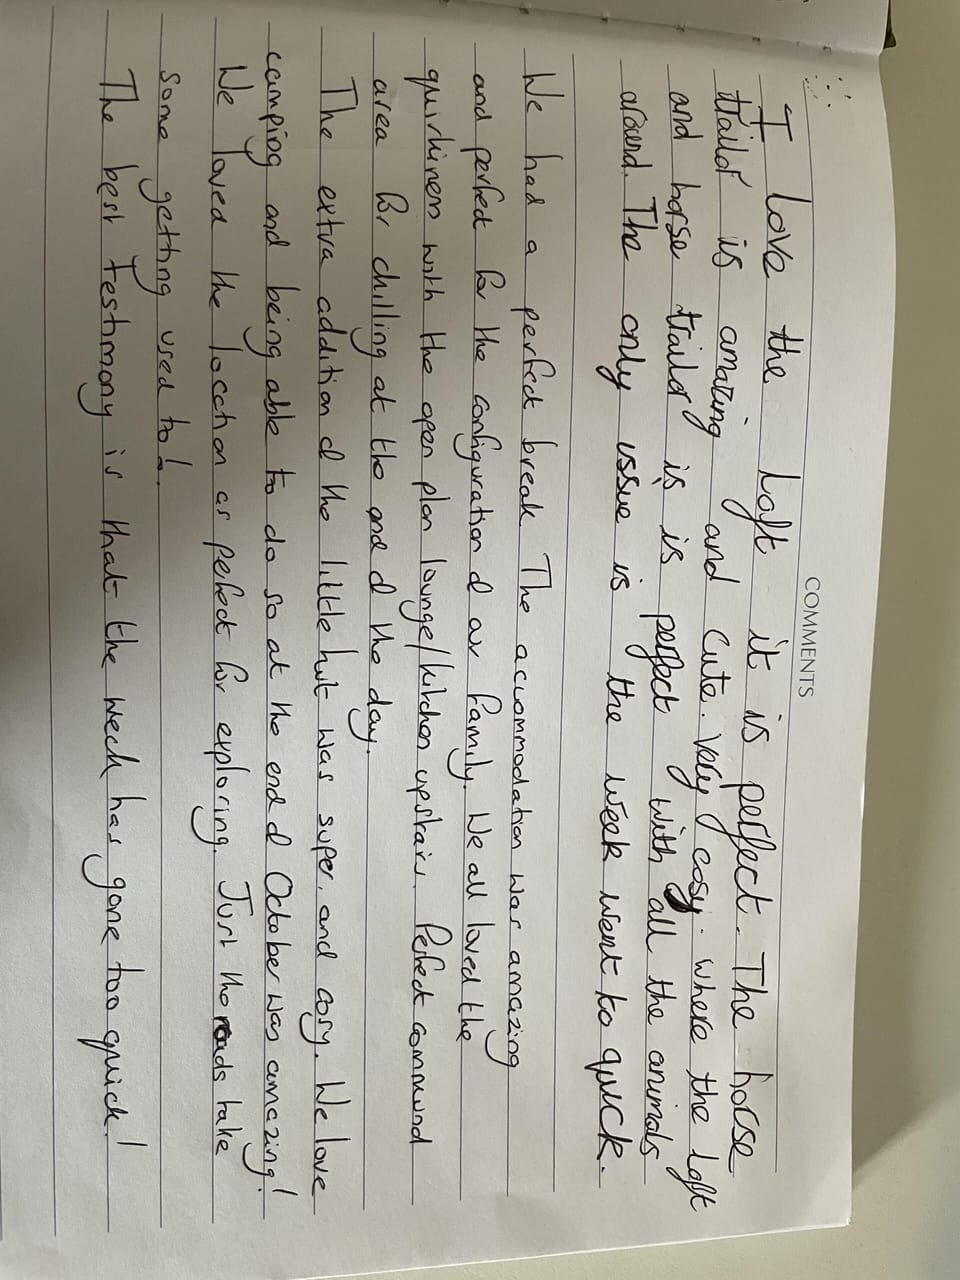 COMMENTS
I love the Loft it is perfect. The horse
traild is amazing and cute. Very cosy. where the Loft
and horse traild is is perfect with all the animals
around. The only issue is the week went to quick.
We had a perfect break. The accommodation was amazing
and perfect for the configuration of our family. We all loved the
quirkiness with the open plan lounge/kitchen upstairs. Perfect communal
area for chilling at the end of the day.
The extra addition of the little hut was super, and cosy. We love
camping and being able to do so at the end of October was amazing!
We loved the location as perfect for exploring. Just the roads take
some getting used to!.
The best testimony is that the week has gone too quick!